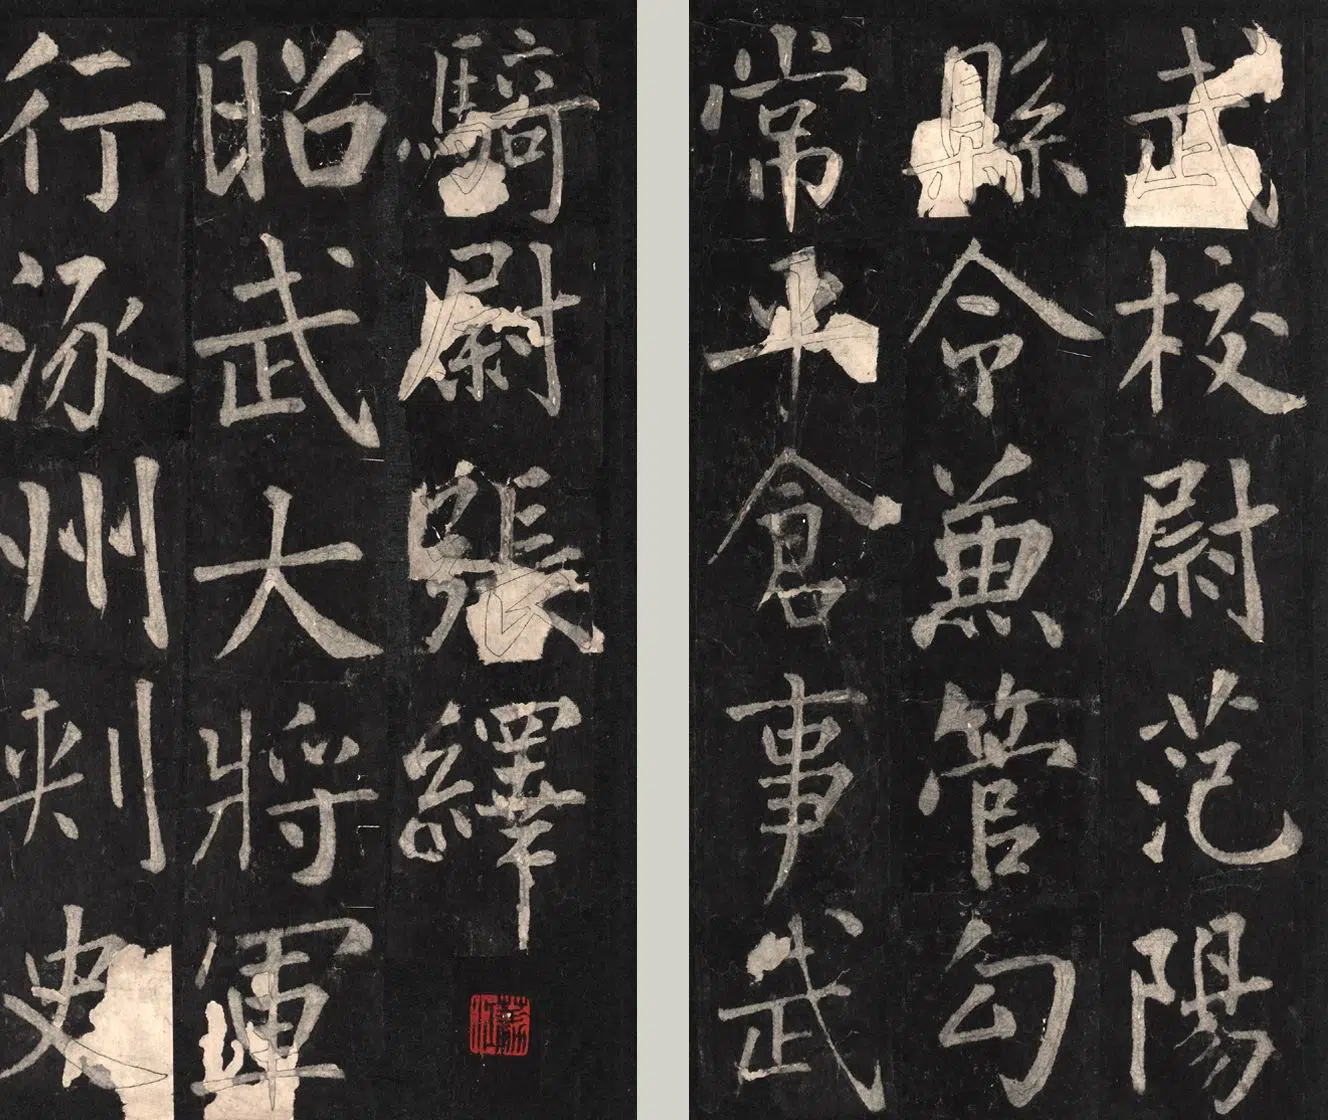 武校尉范陽
縣令兼管勾
常平倉事武
騎尉張繹
昭武大將軍
行涿州刺史